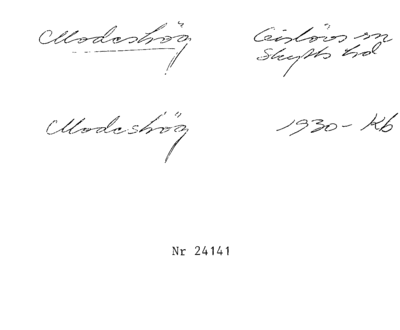 Modeshög Gislövs sn
Skytts hd
Modeshög 1930- Kb
Nr 24141